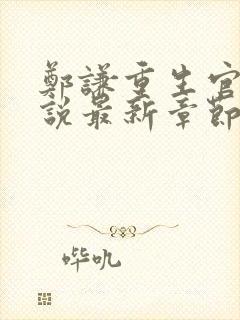 鄭謙重生官
說最新章節
哔吼